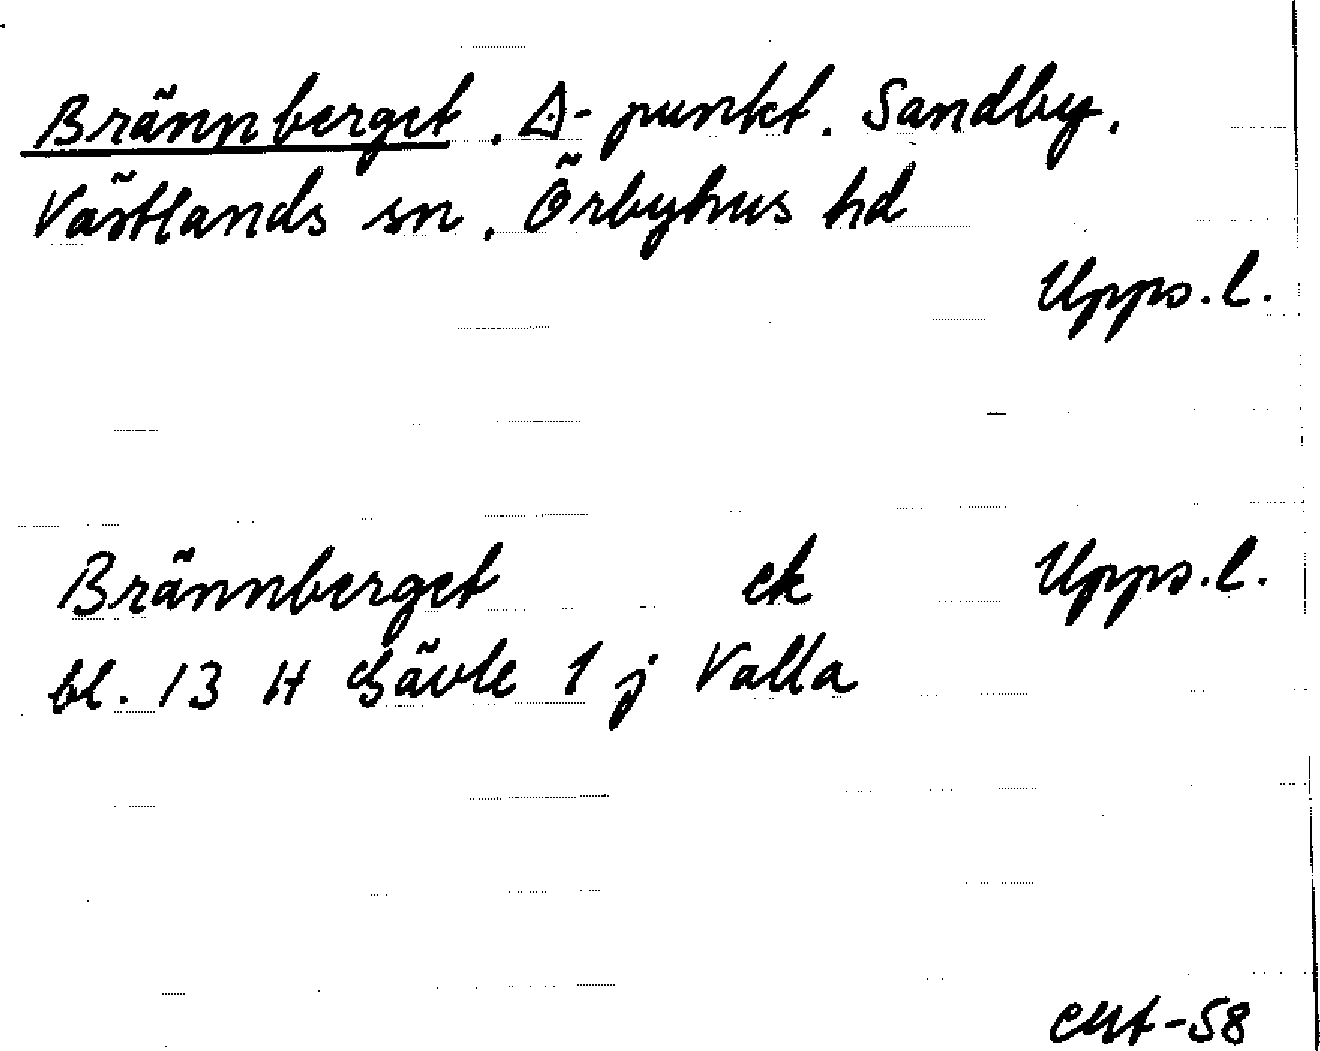 Brännberget. △-punkt. Sandby.
Västlands sn. Örbyhus hd
Upps.l.
Brännberget ek Upps.l.
bl. 13 H Gävle 1 j Valla
-58